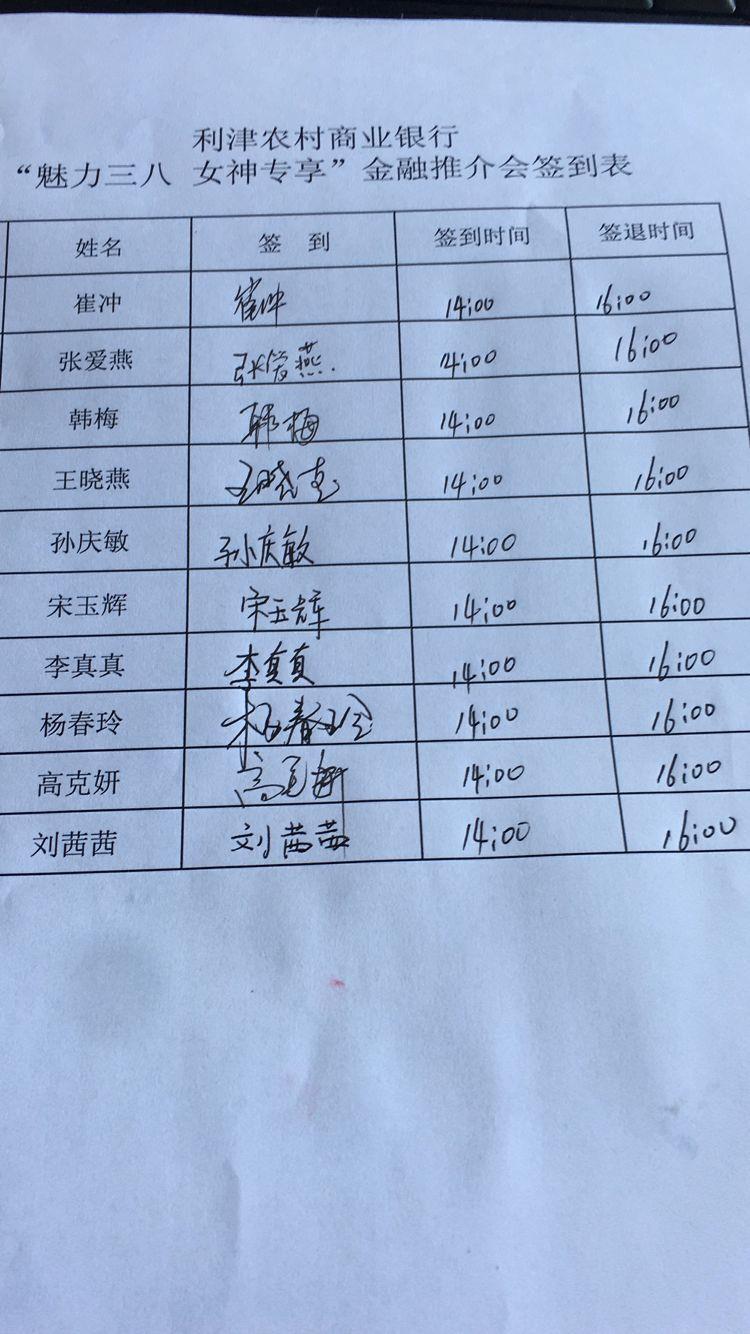 利津农村商业银行
“魅力三八 女神专享”金融推介会签到表
姓名 签 到 签到时间 签退时间
崔冲 崔冲 14:00 16:00
张爱燕 张爱燕. 14:00 16:00
韩梅 韩梅 14:00 16:00
王晓燕 王晓燕 14:00 16:00
孙庆敏 孙庆敏 14:00 16:00
宋玉辉 宋玉辉 14:00 16:00
李真真 李真真 14:00 16:00
杨春玲 杨春玲 14:00 16:00
高克妍 高克妍 14:00 16:00
刘茜茜 刘茜茜 14:00 16:00